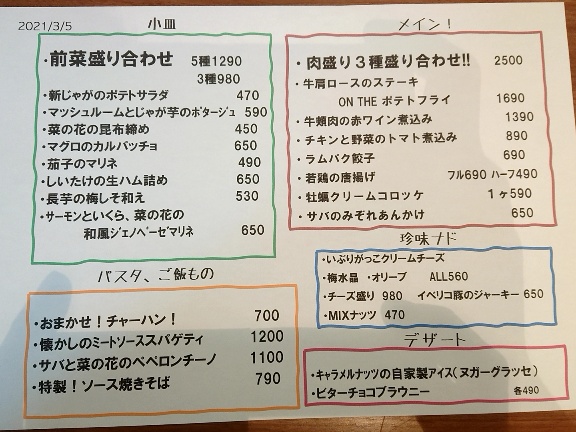 2021/3/5
小皿
・前菜盛り合わせ 5種1290
3種980
・新じゃがのポテトサラダ 470
・マッシュルームとじゃが芋のポタージュ 590
・菜の花の昆布締め 450
・マグロのカルパッチョ 650
・茄子のマリネ 490
・しいたけの生ハム詰め 650
・長芋の梅しそ和え 530
・サーモンといくら、菜の花の
和風ジェノベーゼマリネ 650
パスタ、ご飯もの
・おまかせ！チャーハン！ 700
・懐かしのミートソーススパゲティ 1200
・サバと菜の花のペペロンチーノ 1100
・特製！ソース焼きそば 790
メイン！
・肉盛り３種盛り合わせ!! 2500
・牛肩ロースのステーキ
ON THE ポテトフライ 1690
・牛頬肉の赤ワイン煮込み 1390
・チキンと野菜のトマト煮込み 890
・ラムパク餃子 690
・若鶏の唐揚げ フル690 ハーフ490
・牡蠣クリームコロッケ 1ヶ590
・サバのみぞれあんかけ 650
珍味ナド
・いぶりがっこクリームチーズ
・梅水晶 ・オリーブ ALL560
・チーズ盛り 980 イベリコ豚のジャーキー 650
・MIXナッツ 470
デザート
・キャラメルナッツの自家製アイス(ヌガーグラッセ)
・ビターチョコブラウニー 各490